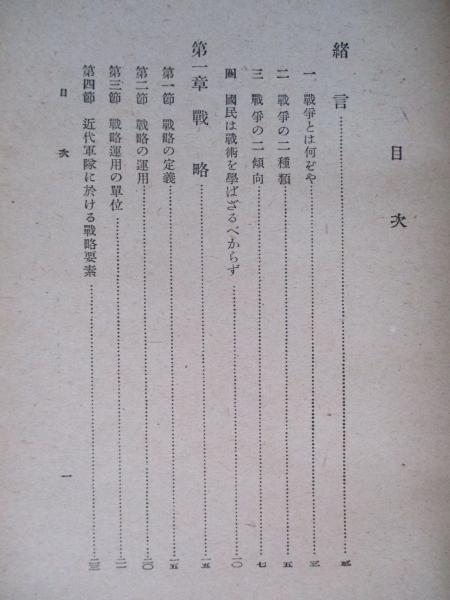 目次
緒言……三
一 戰爭とは何ぞや……三
二 戰爭の二種類……五
三 戰爭の二傾向……七
四 國民は戰術を學ばざるべからず……一〇
第一章 戰略……一五
第一節 戰略の定義……一五
第二節 戰略の運用……二〇
第三節 戰略運用の單位……二一
第四節 近代軍隊に於ける戰略要素……二三
目次 一